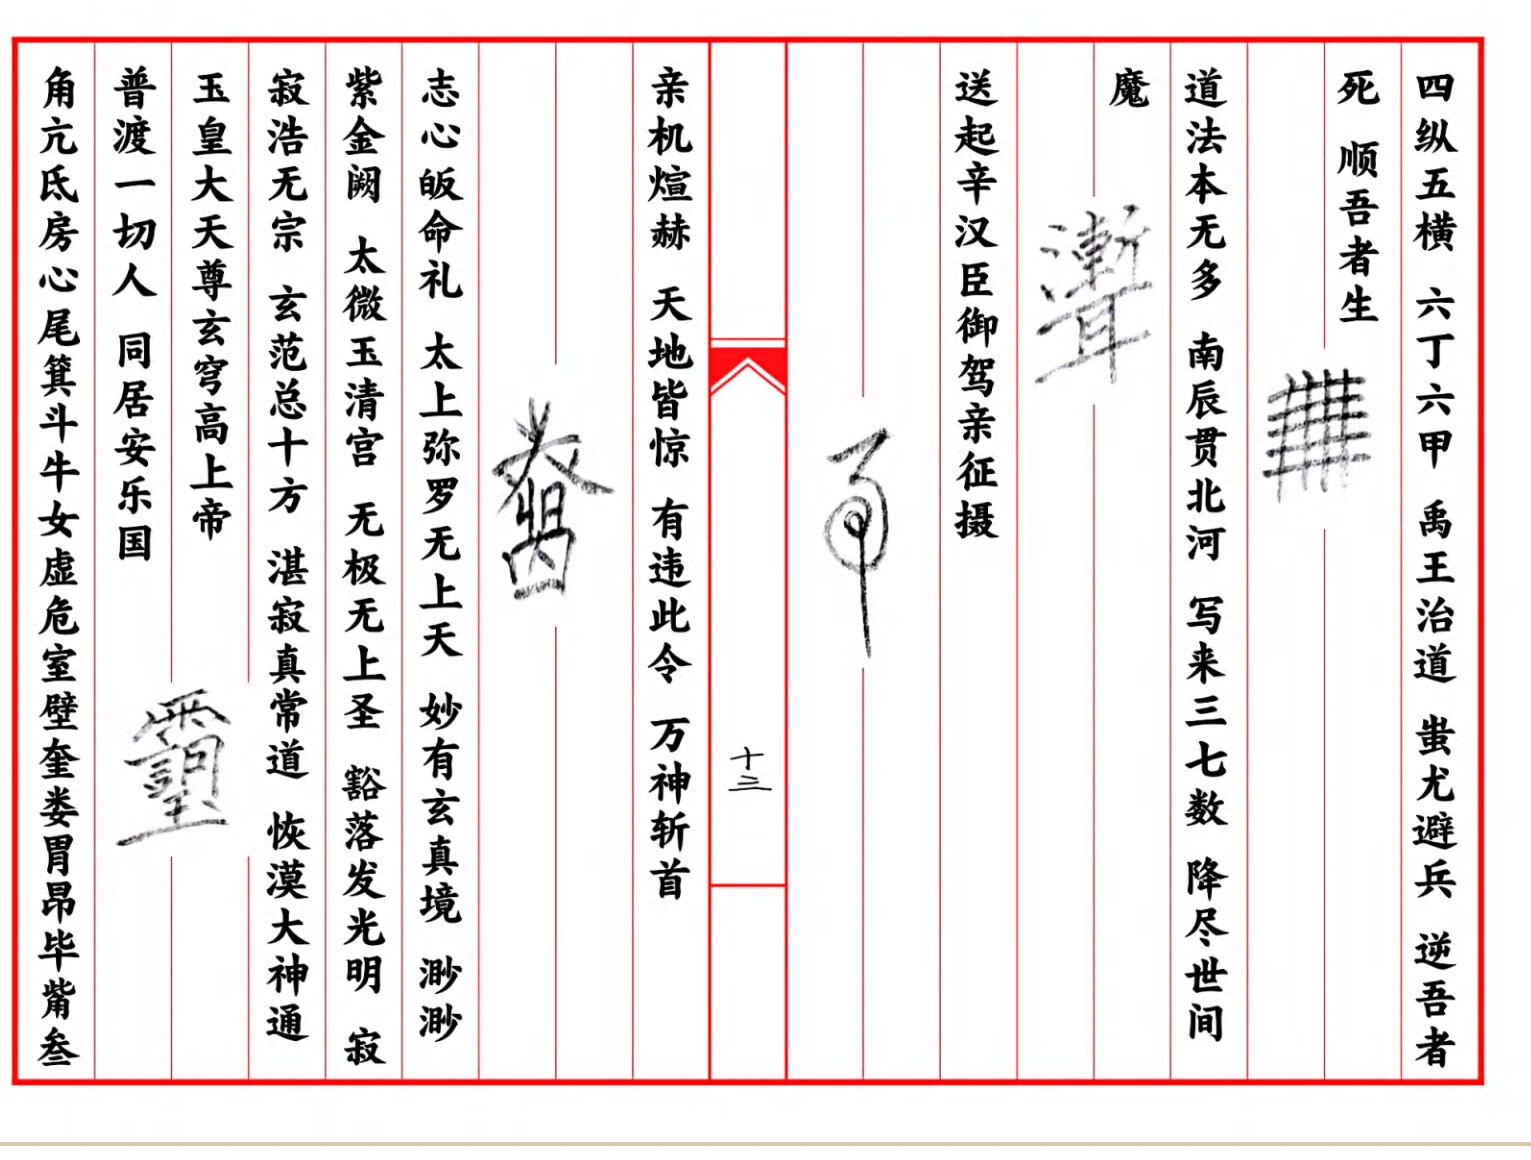 四纵五横 六丁六甲 禹王治道 蚩尤避兵 逆吾者
死 顺吾者生
道法本无多 南辰贯北河 写来三七数 降尽世间
魔
送起辛汉臣御驾亲征摄
十三
亲机煊赫 天地皆惊 有违此令 万神斩首
志心皈命礼 太上弥罗无上天 妙有玄真境 渺渺
紫金阙 太微玉清宫 无极无上圣 豁落发光明 寂
寂浩无宗 玄范总十方 湛寂真常道 恢漠大神通
玉皇大天尊玄穹高上帝
普渡一切人 同居安乐国
角亢氐房心尾箕斗牛女虚危室壁奎娄胃昂毕觜叁